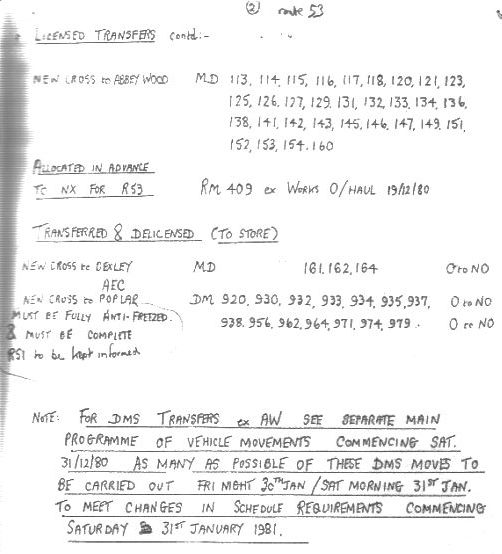 ② route 53
LICENSED TRANSFERS contd:-
NEW CROSS to ABBEY WOOD MD 113, 114, 115, 116, 117, 118, 120, 121, 123,
125, 126, 127, 129, 131, 132, 133, 134, 136,
138, 141, 142, 143, 145, 146, 147, 149, 151,
152, 153, 154, 160
ALLOCATED IN ADVANCE
TO NX FOR R53 RM 409 ex WORKS O/HAUL 19/12/80
TRANSFERRED & DELICENSED (TO STORE)
NEW CROSS to BEXLEY MD 161, 162, 164 O to NO
AEC
NEW CROSS to POPLAR DM 920, 930, 932, 933, 934, 935, 937, O to NO
MUST BE FULLY ANTI-FREEZED. 938, 956, 962, 964, 971, 974, 979. O to NO
& MUST BE COMPLETE
RS1 to be kept informed
NOTE: FOR DMS TRANSFERS ex AW SEE SEPARATE MAIN
PROGRAMME OF VEHICLE MOVEMENTS COMMENCING SAT.
31/12/80 AS MANY AS POSSIBLE OF THESE DMS MOVES TO
BE CARRIED OUT FRI NIGHT 30TH JAN / SAT MORNING 31ST JAN.
TO MEET CHANGES IN SCHEDULE REQUIREMENTS COMMENCING
SATURDAY 31ST JANUARY 1981.